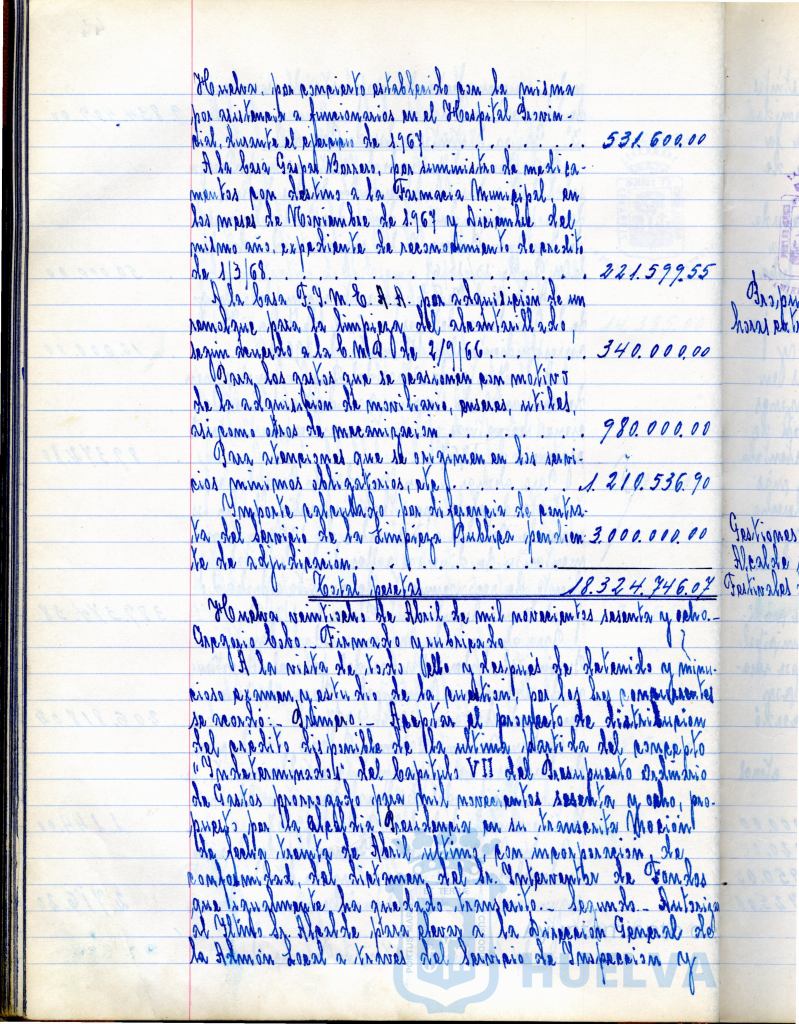 Huelva, por concierto establecido con la misma
por asistencia a funcionarios en el Hospital Provin-
cial, durante el ejercicio de 1967 . . . . . . . . . . . 531.600.00
A la Casa Gaspar Barrero, por suministro de medica-
mentos con destino a la Farmacia Municipal, en
los meses de Noviembre de 1967 y Diciembre del
mismo año, expediente de reconocimiento de credito
de 1/3/68. . . . . . . . . . . . . . . . 221.599.55
A la Casa F.I.M.E.A.A. por adquisición de un
remolque para la limpieza del alcantarillado,
según acuerdo a la C.M.P. de 2/9/66 . . . . . . . 340.000.00
Para los gastos que se ocasionen con motivo
de la adquisición de moviliario, enseres, utiles,
asi como otros de mecanización . . . . . . . . . . 980.000.00
Para atenciones que se originen en los servi-
cios minimos obligatorios, etc. . . . . . . . . 1.210.536.90
Importe calculado por diferencia de contra-
ta del Servicio de la Limpieza Publica pendien- 3.000.000.00
te de adjudicación. . . . . . . . . . . .
Total pesetas 18.324.746.07
Huelva, veintiocho de Abril de mil novecientos sesenta y ocho.-
Gregorio Cobo.- Firmado y rubricado
A la vista de todo ello y despues de detenido y minu-
cioso examen y estudio de la cuestión, por los Sres comparecentes
se acordó:- Primero.- Aceptar el proyecto de distribucion
del credito disponible de la ultima partida del concepto
"Indeterminados" del Capitulo VII del Presupuesto Ordinario
de Gastos prorrogado para mil novecientos sesenta y ocho, pro-
puesto por la Alcaldia Presidencia en su transcrita Moción
de fecha treinta de Abril ultimo, con incorporacion de
conformidad, del dictamen del Sr. Interventor de Fondos
que igualmente ha quedado transcrito.- Segundo.- Autorizar
al Iltmo Sr. Alcalde para elevar a la Dirección General de
la Admón Local a través del Servicio de Inspeccion y
horas
Gestiones
Alcalde
Festivales
HUELVA